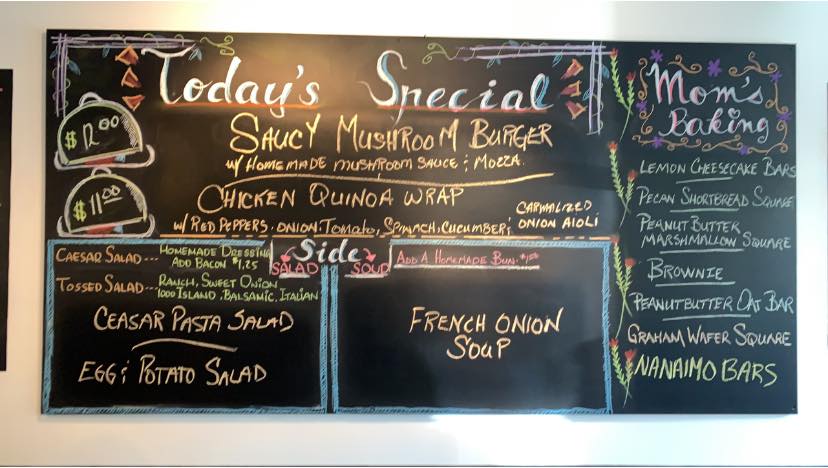 Today's Special
$12.00
SAUCY MUSHROOM BURGER
W/ HOMEMADE MUSHROOM SAUCE & MOZZA.
$11.00
CHICKEN QUINOA WRAP
W/ RED PEPPERS, ONION, TOMATO, SPINACH, CUCUMBER &
CARMALIZED
ONION AIOLI
Side
SALAD
SOUP
CAESAR SALAD--- HOMEMADE DRESSING
ADD BACON $1.25
TOSSED SALAD--- RANCH, SWEET ONION
1000 ISLAND, BALSAMIC, ITALIAN
CEASAR PASTA SALAD
EGG & POTATO SALAD
ADD A HOMEMADE BUN
FRENCH ONION
SOUP
Mom's
Baking
LEMON CHEESECAKE BARS
PECAN SHORTBREAD SQUARE
PEANUT BUTTER
MARSHMALLOW SQUARE
BROWNIE
PEANUTBUTTER OAT BAR
GRAHAM WAFER SQUARE
NANAIMO BARS